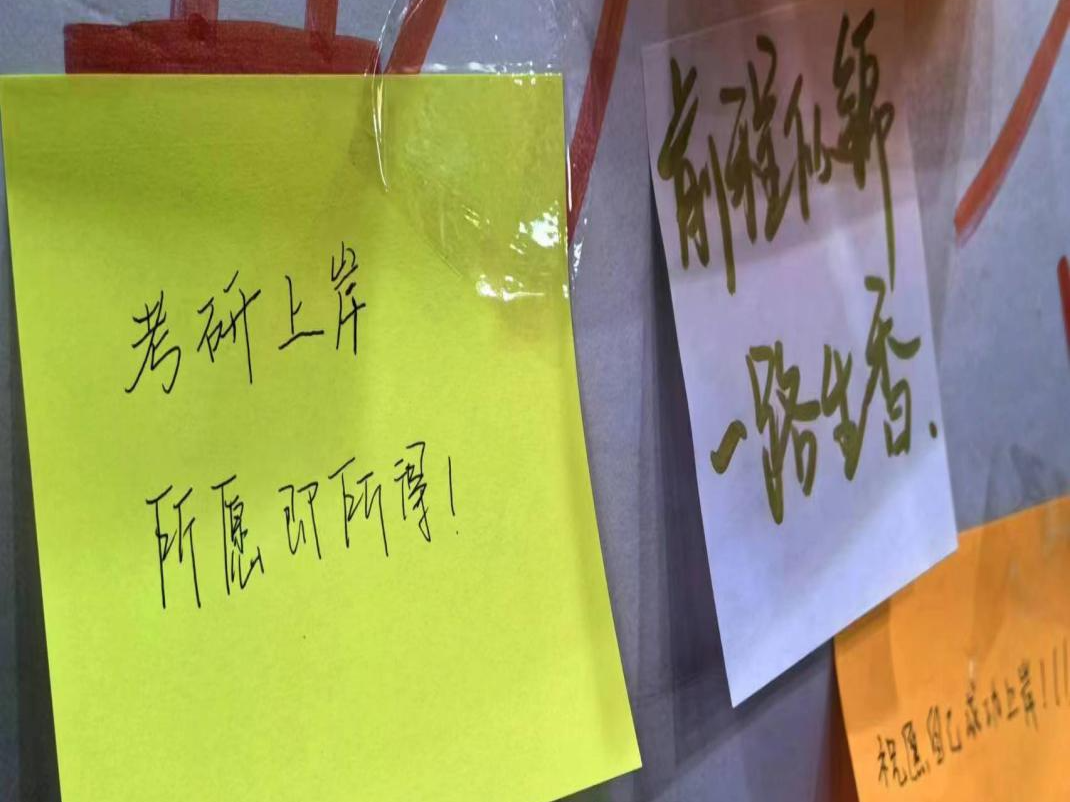 考研上岸
所愿即所得!
前程似锦
一路生香.
祝愿自己成功上岸!!!